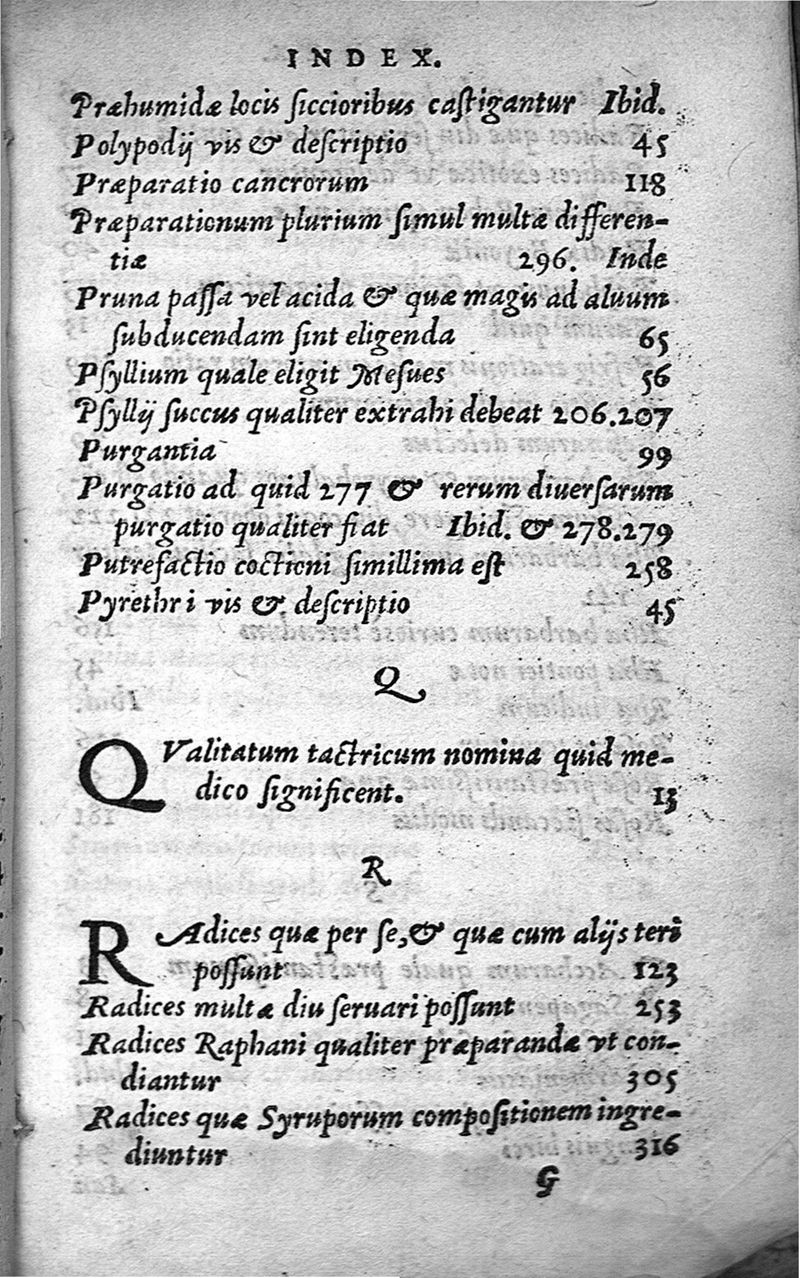 INDEX.
Præhumidæ locis ſiccioribus caſtigantur Ibid.
Polypodij vis & deſcriptio 45
Præparatio cancrorum 118
Præparationum plurium ſimul multæ differen-
tiæ 296. Inde
Pruna paſſa vel acida & quæ magis ad aluum
ſubducendam ſint eligenda 65
Pſyllium quale eligit Meſues 56
Pſyllij ſuccus qualiter extrahi debeat 206.207
Purgantia 99
Purgatio ad quid 277 & rerum diuerſarum
purgatio qualiter fiat Ibid. & 278.279
Putrefactio coctioni ſimillima eſt 258
Pyrethri vis & deſcriptio 45
Q
QValitatum tactricum nomina quid me-
dico ſignificent. 13
R
RAdices quæ per ſe, & quæ cum alijs teri
poſſunt 123
Radices multæ diu ſeruari poſſunt 253
Radices Raphani qualiter præparandæ vt con-
diantur 305
Radices quæ Syruporum compoſitionem ingre-
diuntur 316
G